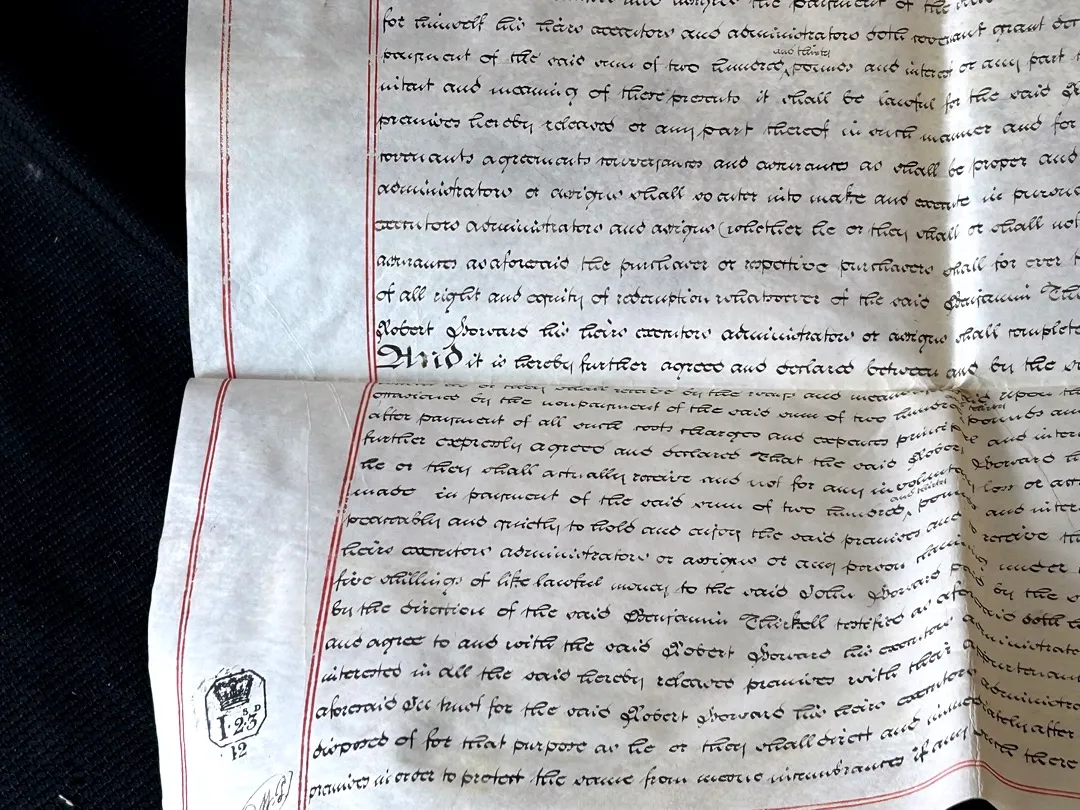 the payment of the
for himself his heirs executors and administrators doth covenant grant
and thirty
payment of the said sum of two hundred pounds and interest or any part
intent and meaning of these presents it shall be lawful for the said
premises hereby released or any part thereof in such manner and for
covenants agreements conveyances and assurances as shall be proper and
administrators or assigns shall so enter into make and execute in
executors administrators and assigns (whether he or they shall or shall not
assurances as aforesaid the purchaser or respective purchasers shall for ever
of all right and equity of redemption whatsoever of the said Benjamin
Robert his heirs executors administrators or assigns shall complete
And it is hereby further agreed and declared between and by the
or they shall receive by the ways and means upon
occasioned by the nonpayment of the said sum of two hundred pounds
after payment of all such costs charges and expences and
further expressly agreed and declared That the said Robert
he or they shall actually receive and not for any involuntary loss or
and thirty
made in payment of the said sum of two hundred pounds and
peaceably and quietly to hold and enjoy the said premises and receive
heirs executors administrators or assigns or any person claiming under
five shillings of like lawful money to the said John by the
by the direction of the said Benjamin Thirkell testified as doth
and agree to and with the said Robert his executors administrators
interested in all the said hereby released premises with their appurtenances
aforesaid In trust for the said Robert his heirs executors administrators
disposed of for that purpose as he or they shall direct and immediately after
premises in order to protect the same from mesne incumbrances if any such there
S D
1·2·3
12